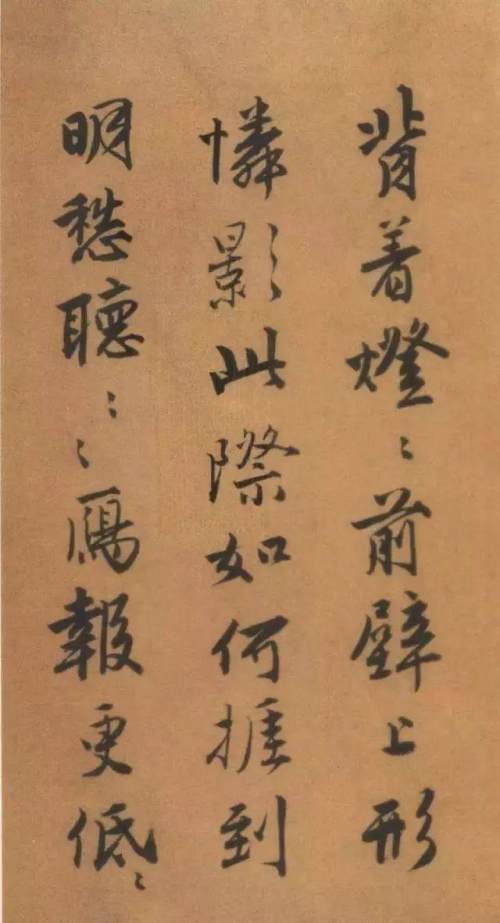 背着燈〻前壁上形
憐影此際如何捱到
明愁聽〻〻鴈報更低〻